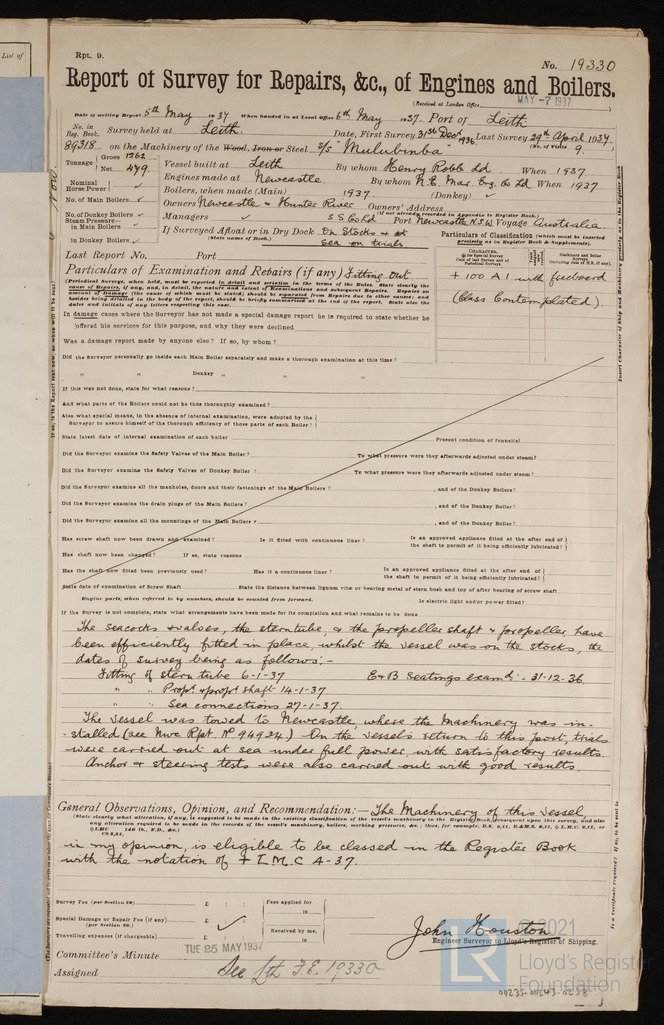 List of
Rpt. 9.
No. 19330
Report of Survey for Repairs, &c., of Engines and Boilers.
(Received at London Office
MAY -7 1937
Date of writing Report 5th May 1937 When handed in at Local Office 6th May 1937. Port of Leith
No. in Reg. Book. Survey held at Leith Date, First Survey 31st Decr 1936 Last Survey 29th April 1937
86318 on the Machinery of the Wood, Iron or Steel S/S "Mulubinba" (No. of Visits 9.
Tonnage Gross 1262 Net 479. Vessel built at Leith By whom Henry Robb Ld. When 1937.
Engines made at Newcastle By whom N.E. Mar. Eng. Co Ld When 1937
Nominal Horse Power ✓ Boilers, when made (Main) 1937 (Donkey) ✓
No. of Main Boilers ✓ Owners Newcastle & Hunter River Owners' Address
(if not already recorded in Appendix to Register Book.)
No. of Donkey Boilers ✓ Managers ✓ S S Co Ld Port Newcastle N.S.W. Voyage Australia.
Steam Pressure— in Main Boilers ✓ If Surveyed Afloat or in Dry Dock On Stocks & at
in Donkey Boilers ✓ (State name of Dock.) Sea on trials
Particulars of Classification (which must be inserted precisely as in Register Book & Supplements).
Last Report No. Port
Particulars of Examination and Repairs (if any) Fitting Out
+ 100 A 1 with freeboard
(Class Contemplated)
(Periodical Surveys, when held, must be reported in detail and seriatim in the terms of the Rules. State clearly the
In damage cases where the Surveyor has not made a special damage report he is required to state whether he
offered his services for this purpose, and why they were declined
Was a damage report made by anyone else? If so, by whom?
Did the Surveyor personally go inside each Main Boiler separately and make a thorough examination at this time?
" " Donkey " " "
If this was not done, state for what reasons?
And what parts of the Boilers could not be thoroughly examined?
Also what special means, in the absence of internal examination, were adopted by the
Surveyor to assure himself of the thorough efficiency of those parts of each Boiler?
State latest date of internal examination of each boiler Present condition of funnel(s)
Did the Surveyor examine the Safety Valves of the Main Boiler? To what pressure were they afterwards adjusted under steam?
Did the Surveyor examine the Safety Valves of Donkey Boiler? To what pressure were they afterwards adjusted under steam?
Did the Surveyor examine all the manholes, doors and their fastenings of the Main Boilers? , and of the Donkey Boilers?
Did the Surveyor examine the drain plugs of the Main Boilers? , and of the Donkey Boilers?
Did the Surveyor examine all the mountings of the Main Boilers? , and of the Donkey Boiler?
Has screw shaft now been drawn and examined? Is it fitted with continuous liner? Is an approved appliance fitted at the after end of
the shaft to permit of it being efficiently lubricated?
Has shaft now been changed? If so, state reasons
Has the shaft now fitted been previously used? Has it a continuous liner? Is an approved appliance fitted at the after end of
the shaft to permit of it being efficiently lubricated?
State date of examination of Screw Shaft State the distance between lignum vitæ or bearing metal of stern bush and top of after bearing of screw shaft.
Engine parts, when referred to by numbers, should be counted from forward. Is electric light and/or power fitted?
If the Survey is not complete, state what arrangements have been made for its completion and what remains to be done
The seacocks & valves, the sterntube, & the propeller shaft & propeller, have
been efficiently fitted in place, whilst the vessel was on the stocks, the
dates of survey being as follows:-
Fitting of stern tube 6-1-37 E & B Seatings examd:- 31-12-36.
" " Propr. & propr shaft 14-1-37.
" " Sea connections 27-1-37.
The vessel was towed to Newcastle where the machinery was in-
-stalled (see Nwc Rpt. No 94924.) On the vessel's return to this port, trials
were carried out at sea under full power, with satisfactory results.
Anchor & steering tests were also carried out with good results.
General Observations, Opinion, and Recommendation:— The Machinery of this vessel,
(State clearly what alteration, if any, is suggested to be made in the existing classification of the vessel's machinery in the Register Book, consequent upon this survey, and also
any alteration required to be made in the records of the vessel's machinery, boilers, working pressures, &c.; thus, for example, B.S. 9,11, B.&M.S. 9,11, ✠L.M.C. 9,11, or
in my opinion, is eligible to be classed in the Register Book
with the notation of + L.M.C 4-37.
Survey Fee (per Section 29.) £ : :
Special Damage or Repair Fee (if any) £ : :
(per Section 29.)
Travelling expenses (if chargeable) £ : :
Fees applied for
19
Received by me,
19
John Houston
Engineer Surveyor to Lloyd's Register of Shipping.
Committee's Minute TUE 25 MAY 1937
Assigned See Lth F.E. 19330
© 2021
LR
Lloyd's Register
Foundation
011235-011243-0258